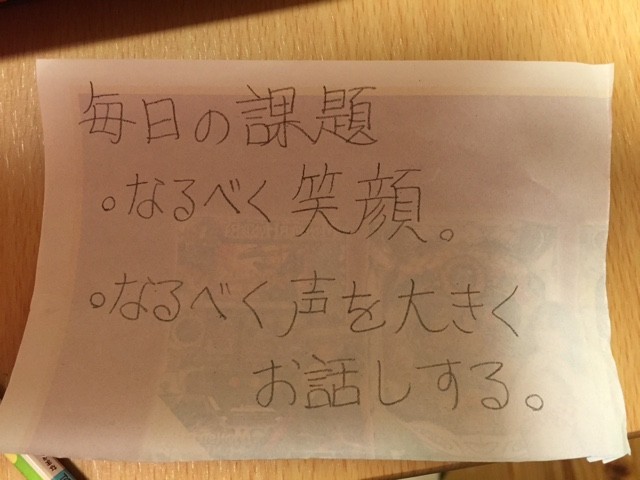 毎日の課題
。なるべく笑顔。
。なるべく声を大きく
お話しする。